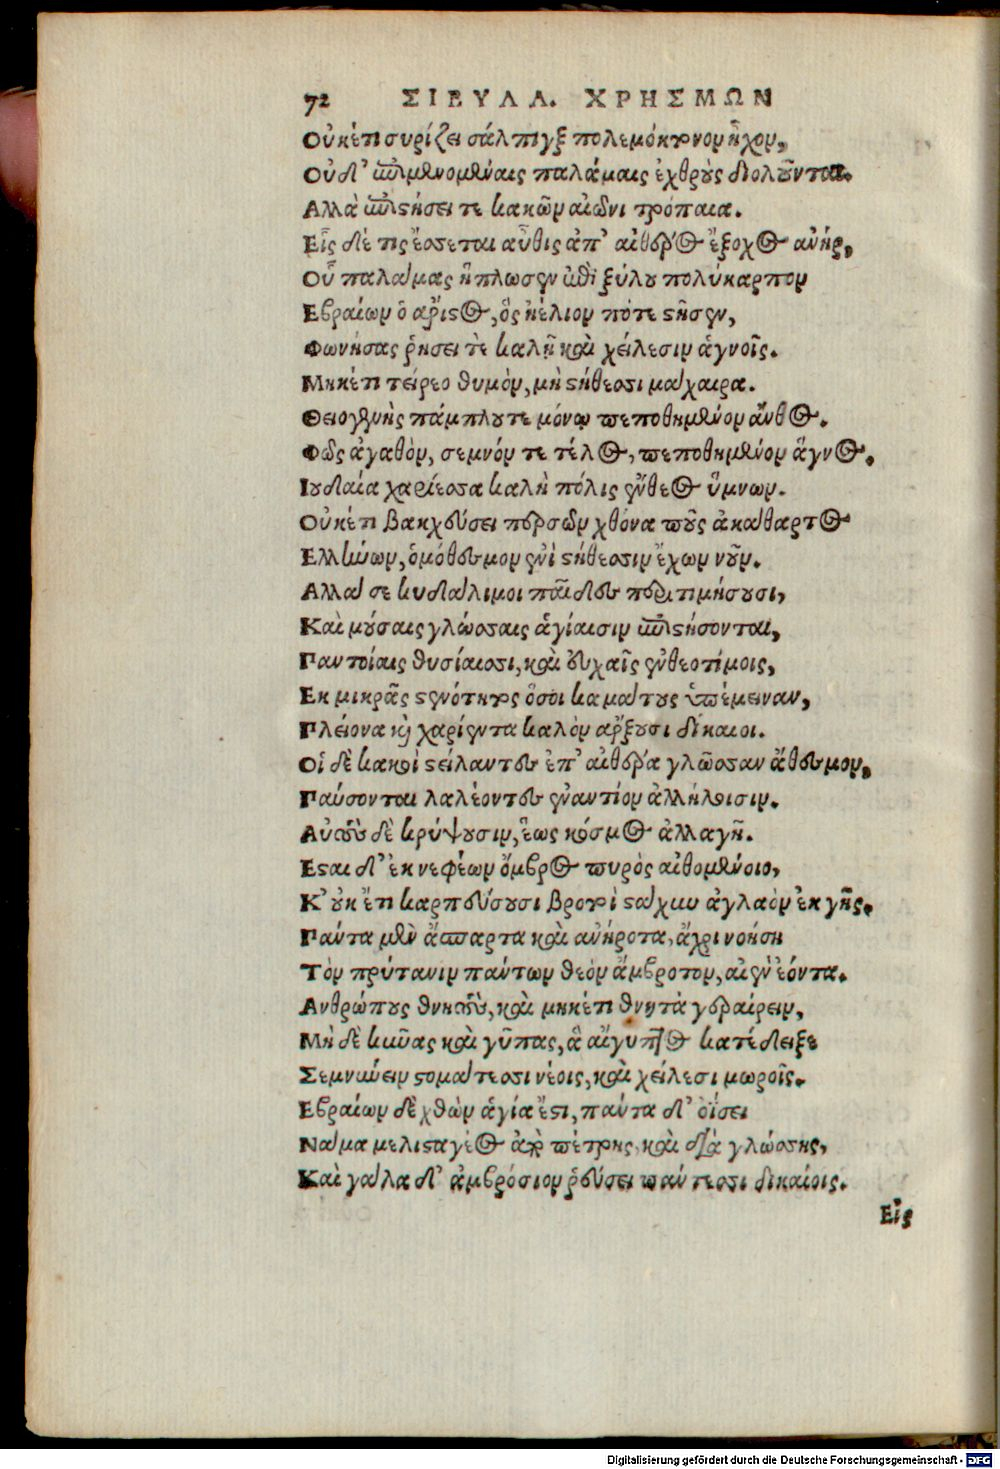 72 ΣΙΒΥΛΛ. ΧΡΗΣΜΩΝ
Οὐκέτι συρίζει σάλπιγξ πολεμόκτονον ἦχον,
Οὐδ' ἐπιμαινομέναις παλάμαις ἐχθροὺς διολοῦνται.
Αλλὰ ἐπιστήσει τε κακῶν αἰῶνι τρόπαια.
Εἷς δέ τις ἔσσεται αὖθις ἀπ' αἰθέρος ἔξοχος ἀνήρ,
Οὗ παλάμας ἥπλωσεν ἐπὶ ξύλου πολύκαρπον
Εβραίων ὁ ἄριστος, ὃς ἠέλιον πότε στῆσεν,
Φωνήσας ῥήσει τὲ καλῇ καὶ χείλεσιν ἁγνοῖς.
Μηκέτι τείρεο θυμὸν, μὴ στήθεσσι μάχαιρα.
Θειογενὴς πάμπλουτε μόνῳ πεποθημένον ἄνθος.
Φῶς ἀγαθὸν, σεμνόν τε τέλος, πεποθημένον ἅγνος.
Ιουδαία χαρίεσσα καλὴ πόλις ἔνθεος ὕμνων.
Οὐκέτι βακχεύσει περσῶν χθόνα ποῦς ἀκάθαρτος
Ελλήνων, ὁμόθεσμον ἐνὶ στήθεσσιν ἔχων νοῦν.
Αλλά σε κυδάλιμοι παῖδες περιτιμήσουσι,
Καὶ μούσαις γλώσσαις ἁγίαισιν ἐπιστήσονται,
Παντοίαις θυσίαισι, καὶ εὐχαῖς ἐνθεοτίμοις,
Εκ μικρᾶς στενότητος ὅσοι καμάτους ὑπέμειναν,
Πλείονα καὶ χαρίεντα καλὸν ἄρξουσι δίκαιοι.
Οἱ δὲ κακοὶ στείλαντες ἐπ' αἰθέρα γλῶσσαν ἄθεσμον,
Παύσονται λαλέοντες ἐναντίον ἀλλήλοισιν.
Αὐτοὺς δὲ κρύψουσιν, ἕως κόσμος ἀλλαγῇ.
Εσται δ' ἐκ νεφέων ὄμβρος πυρὸς αἰθομένοιο,
Κ' οὐκ ἔτι καρπεύσουσι βροτοὶ στάχυν ἀγλαὸν ἐκ γῆς.
Πάντα μὲν ἄσπαρτα καὶ ἀνήροτα, ἄχρι νοήσῃ
Τὸν πρύτανιν πάντων θεὸν ἄμβροτον, αἰὲν ἐόντα.
Ανθρώπους θνητοὺς, καὶ μηκέτι θνητὰ γεραίρειν,
Μὴ δὲ κύνας καὶ γῦπας, ἃ αἴγυπτος κατέδειξε
Σεμνύνειν στομάτεσσι νέοις, καὶ χείλεσι μωροῖς.
Εβραίων δὲ χθὼν ἁγία ἔστι, πάντα δ' οἴσει
Νάμα μελισταγέος ἀπὸ πέτρης, καὶ διὰ γλώσσης,
Καὶ γάλα δ' ἀμβρόσιον ῥεύσει πάντεσσι δικαίοις.
Εἷς
Digitalisierung gefördert durch die Deutsche Forschungsgemeinschaft - DFG